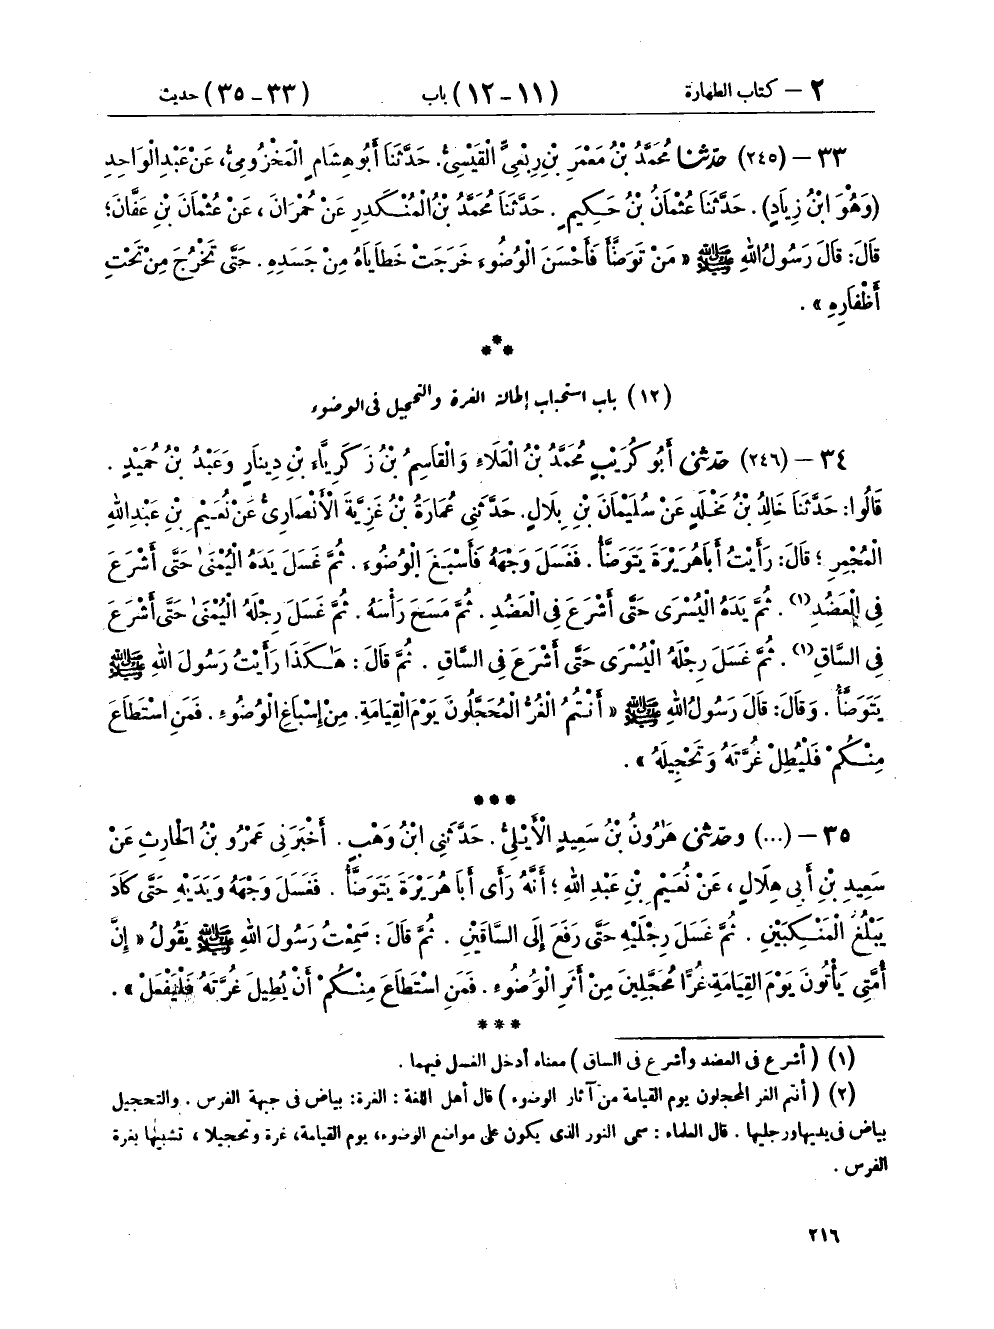 ٢ – كتاب الطهارة (١١-١٢) باب (٣٣-٣٥) حديث
٣٣ – (٢٤٥) حَدَّثَنَا مُحَمَّدُ بْنُ مَعْمَرِ بْنِ رِبْعِيٍّ الْقَيْسِيُّ. حَدَّثَنَا أَبُو هِشَامٍ الْمَخْزُومِيُّ، عَنْ عَبْدِ الْوَاحِدِ
(وَهُوَ ابْنُ زِيَادٍ). حَدَّثَنَا عُثْمَانُ بْنُ حَكِيمٍ. حَدَّثَنَا مُحَمَّدُ بْنُ الْمُنْكَدِرِ عَنْ حُمْرَانَ، عَنْ عُثْمَانَ بْنِ عَفَّانَ؛
قَالَ: قَالَ رَسُولُ اللهِ ﷺ «مَنْ تَوَضَّأَ فَأَحْسَنَ الْوُضُوءَ خَرَجَتْ خَطَايَاهُ مِنْ جَسَدِهِ. حَتَّى تَخْرُجَ مِنْ تَحْتِ
أَظْفَارِهِ».
(١٢) باب استحباب إطالة الغرة والتحجيل فى الوضوء
٣٤ – (٢٤٦) حَدَّثَنِي أَبُو كُرَيْبٍ مُحَمَّدُ بْنُ الْعَلَاءِ وَالْقَاسِمُ بْنُ زَكَرِيَّاءَ بْنِ دِينَارٍ وَعَبْدُ بْنُ حُمَيْدٍ.
قَالُوا: حَدَّثَنَا خَالِدُ بْنُ مَخْلَدٍ عَنْ سُلَيْمَانَ بْنِ بِلَالٍ. حَدَّثَنِي عُمَارَةُ بْنُ غَزِيَّةَ الْأَنْصَارِيُّ عَنْ نُعَيْمِ بْنِ عَبْدِ اللهِ
الْمُجْمِرِ؛ قَالَ: رَأَيْتُ أَبَا هُرَيْرَةَ يَتَوَضَّأُ. فَغَسَلَ وَجْهَهُ فَأَسْبَغَ الْوُضُوءَ. ثُمَّ غَسَلَ يَدَهُ الْيُمْنَى حَتَّى أَشْرَعَ
فِى الْعَضُدِ(١). ثُمَّ يَدَهُ الْيُسْرَى حَتَّى أَشْرَعَ فِى الْعَضُدِ. ثُمَّ مَسَحَ رَأْسَهُ. ثُمَّ غَسَلَ رِجْلَهُ الْيُمْنَى حَتَّى أَشْرَعَ
فِى السَّاقِ(١). ثُمَّ غَسَلَ رِجْلَهُ الْيُسْرَى حَتَّى أَشْرَعَ فِى السَّاقِ. ثُمَّ قَالَ: هَٰكَذَا رَأَيْتُ رَسُولَ اللهِ ﷺ
يَتَوَضَّأُ. وَقَالَ: قَالَ رَسُولُ اللهِ ﷺ «أَنْتُمُ الْغُرُّ الْمُحَجَّلُونَ يَوْمَ الْقِيَامَةِ. مِنْ إِسْبَاغِ الْوُضُوءِ. فَمَنِ اسْتَطَاعَ
مِنْكُمْ فَلْيُطِلْ غُرَّتَهُ وَتَحْجِيلَهُ».
٣٥ – (...) وحَدَّثَنِي هَٰرُونُ بْنُ سَعِيدٍ الْأَيْلِيُّ. حَدَّثَنِي ابْنُ وَهْبٍ. أَخْبَرَنِي عَمْرُو بْنُ الْحَارِثِ عَنْ
سَعِيدِ بْنِ أَبِي هِلَالٍ، عَنْ نُعَيْمِ بْنِ عَبْدِ اللهِ؛ أَنَّهُ رَأَى أَبَا هُرَيْرَةَ يَتَوَضَّأُ. فَغَسَلَ وَجْهَهُ وَيَدَيْهِ حَتَّى كَادَ
يَبْلُغُ الْمَنْكِبَيْنِ. ثُمَّ غَسَلَ رِجْلَيْهِ حَتَّى رَفَعَ إِلَى السَّاقَيْنِ. ثُمَّ قَالَ: سَمِعْتُ رَسُولَ اللهِ ﷺ يَقُولُ «إِنَّ
أُمَّتِي يَأْتُونَ يَوْمَ الْقِيَامَةِ غُرًّا مُحَجَّلِينَ مِنْ أَثَرِ الْوُضُوءِ. فَمَنِ اسْتَطَاعَ مِنْكُمْ أَنْ يُطِيلَ غُرَّتَهُ فَلْيَفْعَلْ».
(١) (أشرع فى العضد وأشرع فى الساق) معناه أدخل الغسل فيهما.
(٢) (أنتم الغر المحجلون يوم القيامة من آثار الوضوء) قال أهل اللغة: الغرة: بياض فى جبهة الفرس. والتحجيل
بياض فى يديها ورجليها. قال العلماء: سمى النور الذى يكون على مواضع الوضوء، يوم القيامة، غرة وتحجيلا، تشبيها بغرة
الفرس.
٢١٦